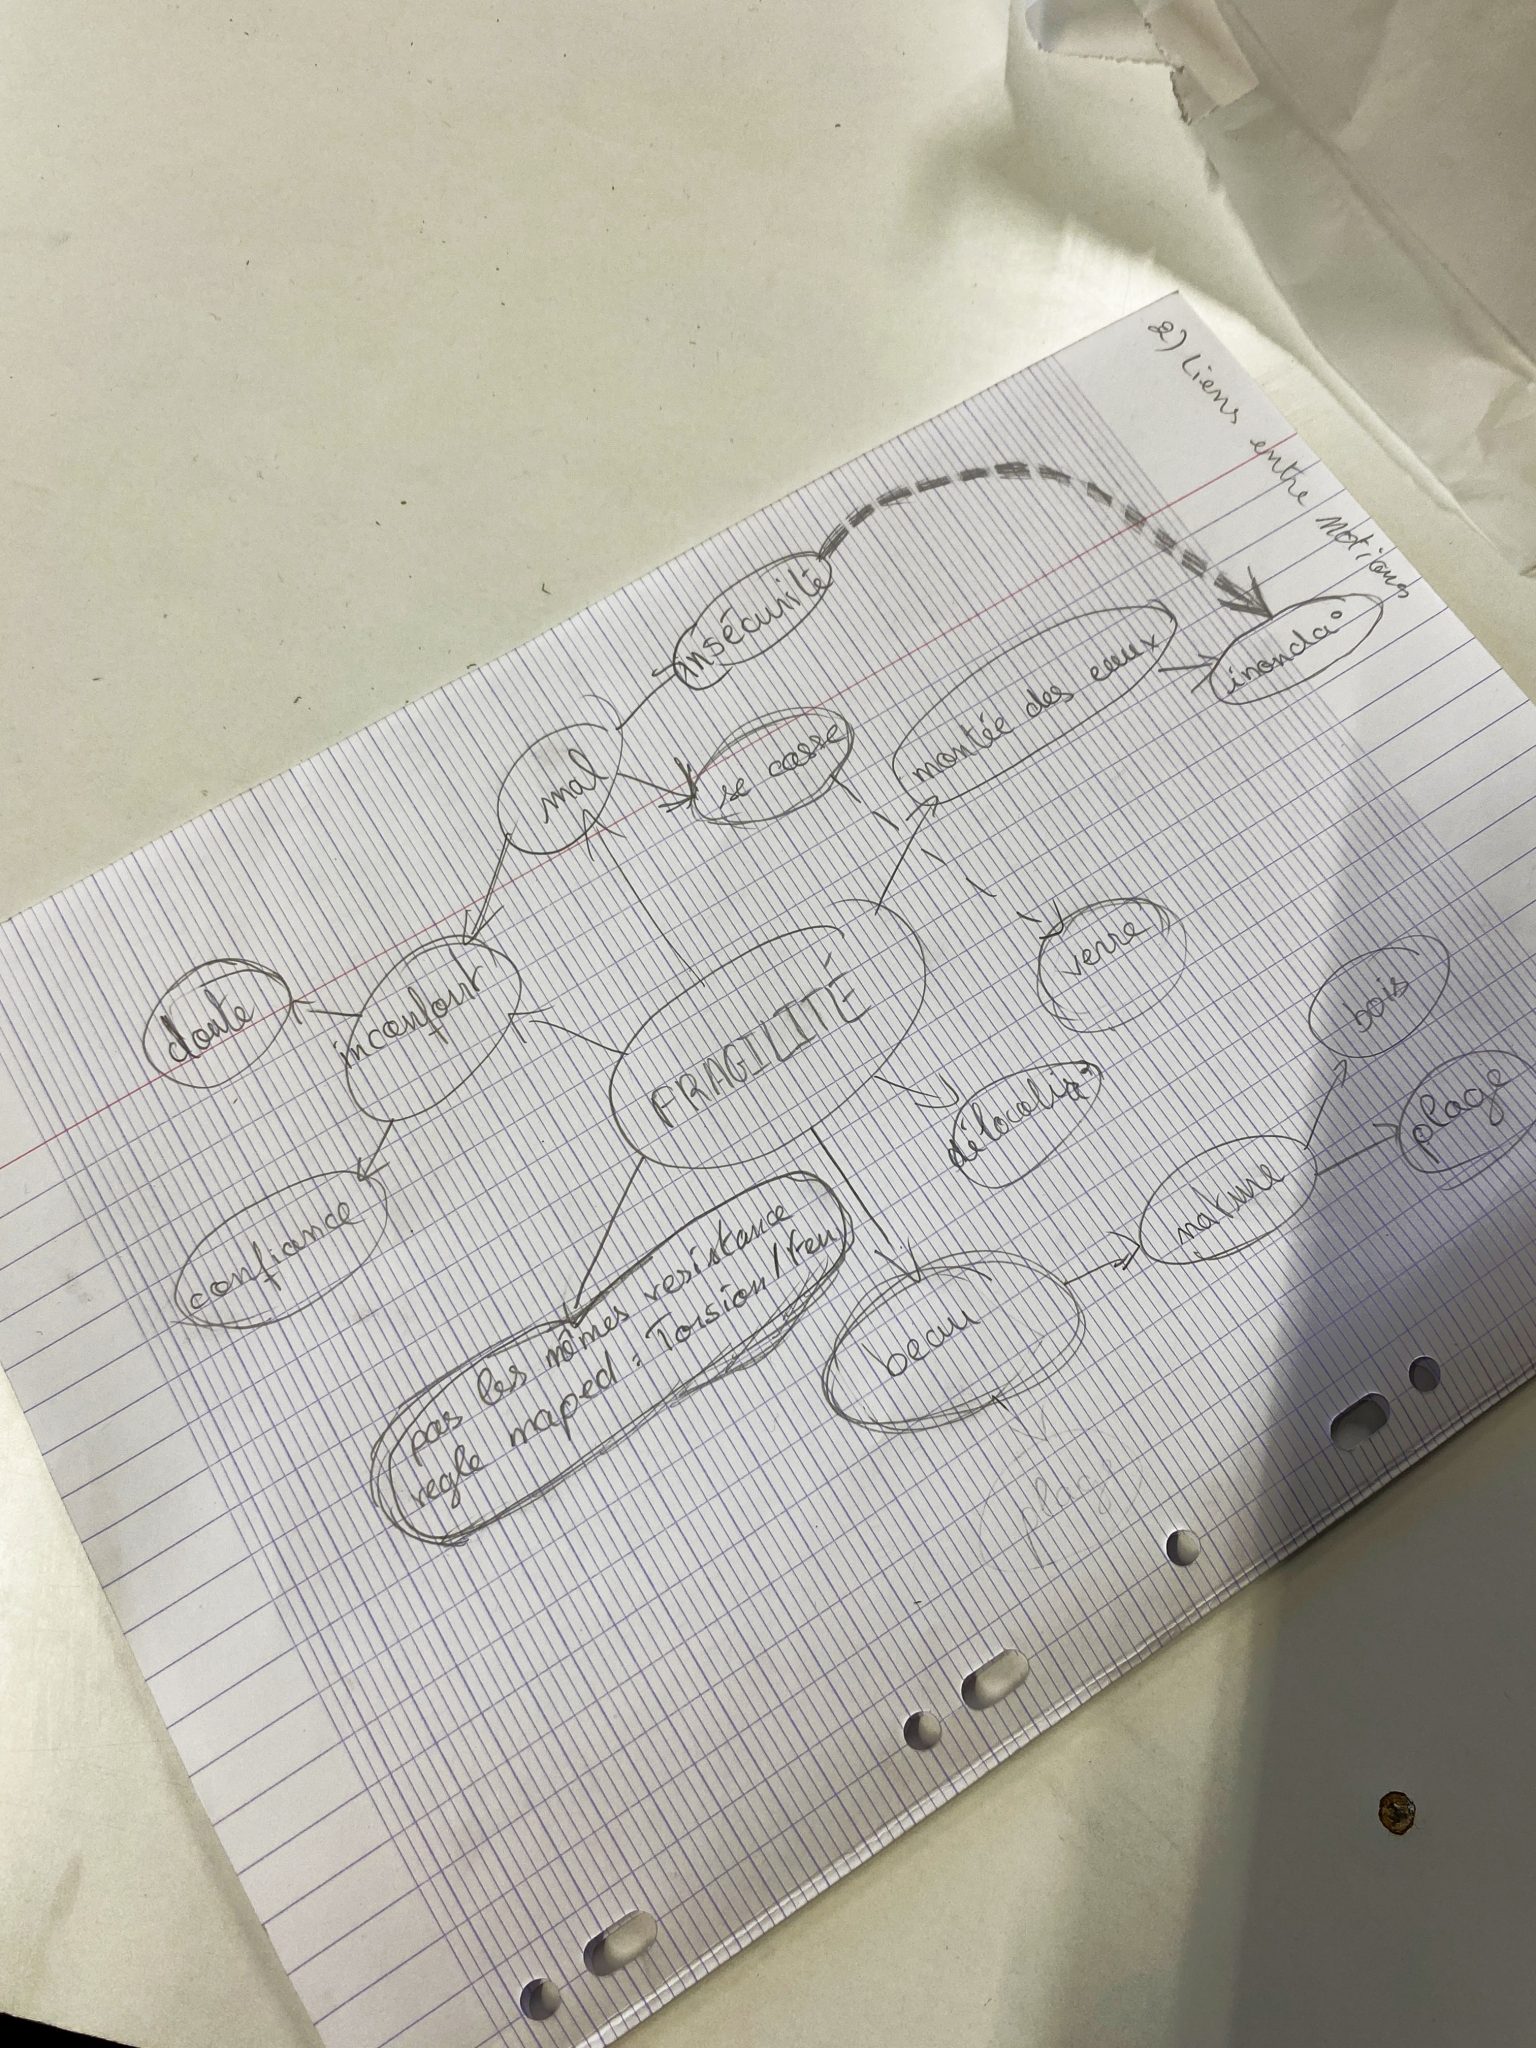 2) Liens entre notions
insécurité
inonda°
montée des eaux
mal
se casse
verre
bois
doute
inconfort
FRAGILITÉ
plage
délocalisa°
nature
confiance
pas les mêmes resistance
regle maped : Torsion/Feu
beau
plage